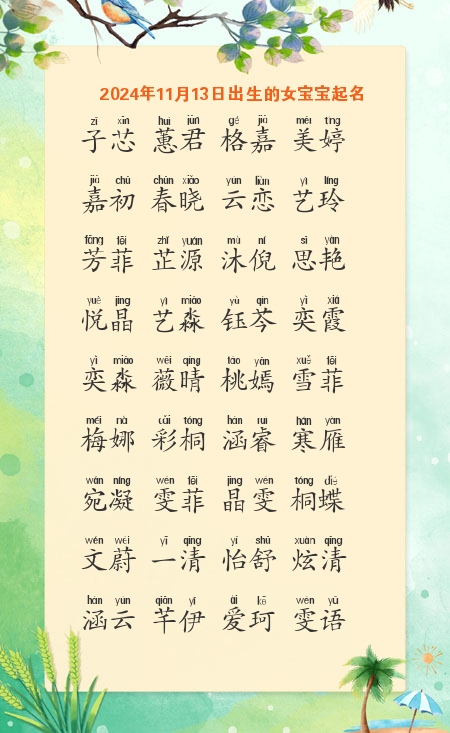 2024年11月13日出生的女宝宝起名
zǐ xīn huì jūn gé jiā měi tíng
子芯 蕙君 格嘉 美婷
jiā chū chūn xiǎo yún liàn yì líng
嘉初 春晓 云恋 艺玲
fāng fēi zhǐ yuán mù ní sī yàn
芳菲 芷源 沐倪 思艳
yuè jīng yì miǎo yù qín yì xiá
悦晶 艺淼 钰芩 奕霞
yì miǎo wēi qíng táo yān xuě fēi
奕淼 薇晴 桃嫣 雪菲
méi nà cǎi tóng hán ruì hán yàn
梅娜 彩桐 涵睿 寒雁
wǎn níng wén fēi jīng wén tóng dié
宛凝 雯菲 晶雯 桐蝶
wén wèi yī qīng yí shū xuàn qīng
文蔚 一清 怡舒 炫清
hán yún qiān yī ài kē wén yǔ
涵云 芊伊 爱珂 雯语